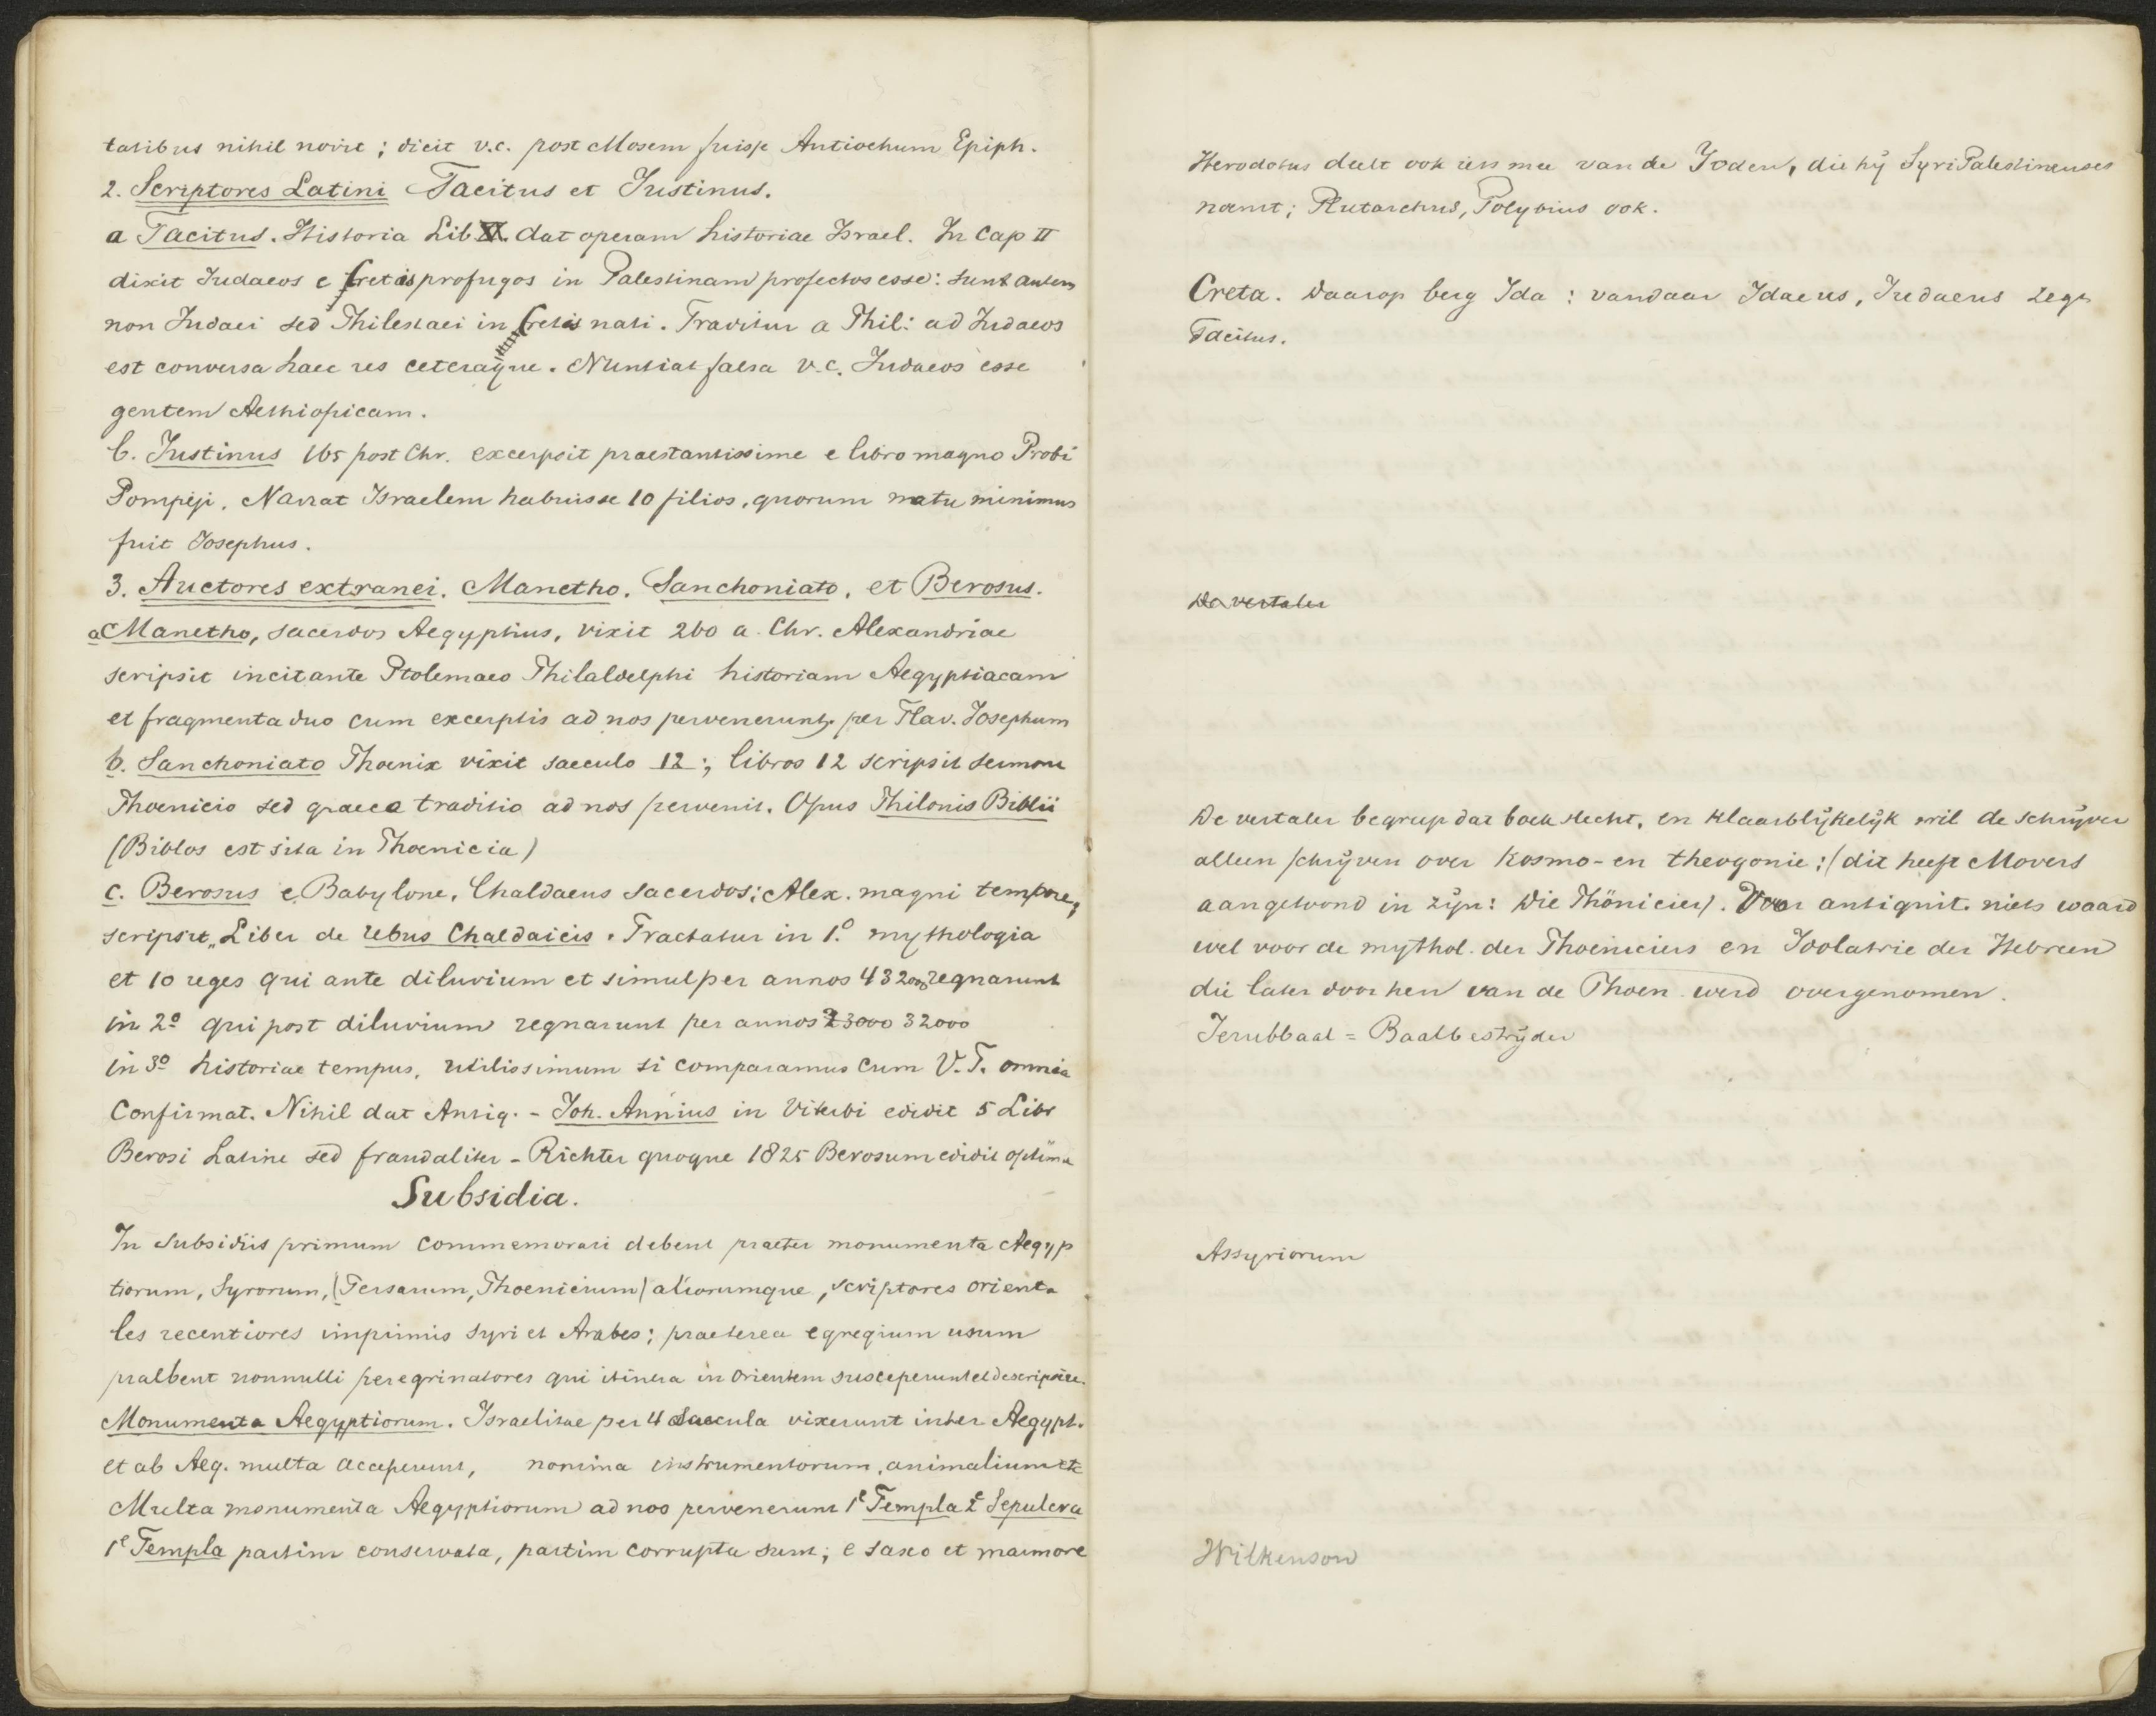 tatibus nihil novit; dicit v.c. post Mosem fuisse Antiochum Epiph.
2. Scriptores Latini Tacitus et Justinus.
a Tacitus. Historia Lib V. dat operam historiae Israel. In Cap II
dixit Judaeos e Cretis profugos in Palestinam profectos esse: sunt autem
non Judaei sed Philestaei in Cretis nati. Traditur a Phil: ad Judaeos
est conversa haec res ceteraque. Nuntiat falsa v.c. Judaeos esse
gentem Aethiopicam.
b. Justinus 165 post Chr. excerpsit praestantissime e libro magno Probi
Pompeji. Narrat Israelem habuisse 10 filios, quorum natu minimus
fuit Josephus.
3. Auctores extranei. Manetho. Sanchoniato, et Berosus.
a Manetho, sacerdos Aegyptius, vixit 260 a. Chr. Alexandriae
scripsit incitante Ptolemaeo Philaldelphi historiam Aegyptiacam
et fragmenta duo cum excerptis ad nos pervenerunt per Flav. Josephum
b. Sanchoniato Phoenix vixit saeculo 12:, libros 12 scripsit sermone
Phoenicio sed graece traditio ad nos pervenit. Opus Philonis Biblii
(Biblos est sita in Phoenicia)
c. Berosus e Babylone, Chaldaeus sacerdos; Alex. magni tempore,
scripsit „Liber de rebus Chaldaicis. Tractatur in 1.o mythologia
et 10 reges qui ante diluvium et simul per annos 432000 regnarunt
in 2o qui post diluvium regnarunt per annos 23000 32000
in 3o historiae tempus, utilissimum si comparamus cum V.T. omnia
Confirmat. Nihil dat Antiq. - Joh. Annius in Viterbi edidit 5 Libr
Berosi Latine sed fraudaliter - Richter quoque 1825 Berosum edidit optima
Subsidia.
In subsidiis primum commemorari debent praeter monumenta Aegyp
tiorum, Syrorum, (Persarum, Phoenicium) aliorumque, scriptores orienta
les recentiores imprimis Syri et Arabes; praeterea egregium usum
praebent nonnulli peregrinatores qui itinera in orientem susceperunt et descripsere.
Monumenta Aegyptiorum. Israelitae per 4 Saecula vixerunt inter Aegypt.
et ab Aeg. multa acceperunt, nomina instrumentorum, animalium etc
Multa monumenta Aegyptiorum ad nos pervenerunt 1e Templa 2e Sepulcra
1e Templa partim conservata, partim corrupta sunt; e saxo et marmore
Herodotus deelt ook iets mee van de Joden, die hij Syri Palestinenses
noemt; Plutarchus, Polybius ook.
Creta. Daarop berg Ida: vandaar Idaeus, Judaeus zegt
Tacitus.
De vertaler
De vertaler begreep dat boek slecht, en klaarblijkelijk wil de schrijver
alleen schrijven over Kosmo- en theogonie; (dit heeft Movers
aangetoond in zijn: Die Phönicier). Voor antiquit. niets waard
wel voor de mythol. der Phoeniciers en Idolatrie der Hebreen
die later door hen van de Phoen. werd overgenomen.
Jerubbaal = Baalbestrijder
Assyriorum
Wilkenson